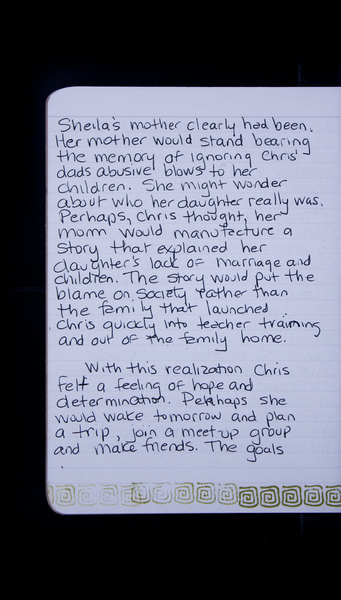 Sheila's mother clearly had been.
Her mother would stand bearing
the memory of ignoring Chris'
dads abusive blows to her
children. She might wonder
about who her daughter really was.
Perhaps, Chris thought, her
mom would manufacture a
story that explained her
daughter's lack of marriage and
children. The story would put the
blame on society rather than
the family that launched
Chris quickly into teacher training
and out of the family home.
With this realization Chris
felt a feeling of hope and
determination. Perhaps she
would wake tomorrow and plan
a trip, join a meet up group
and make friends. The goals